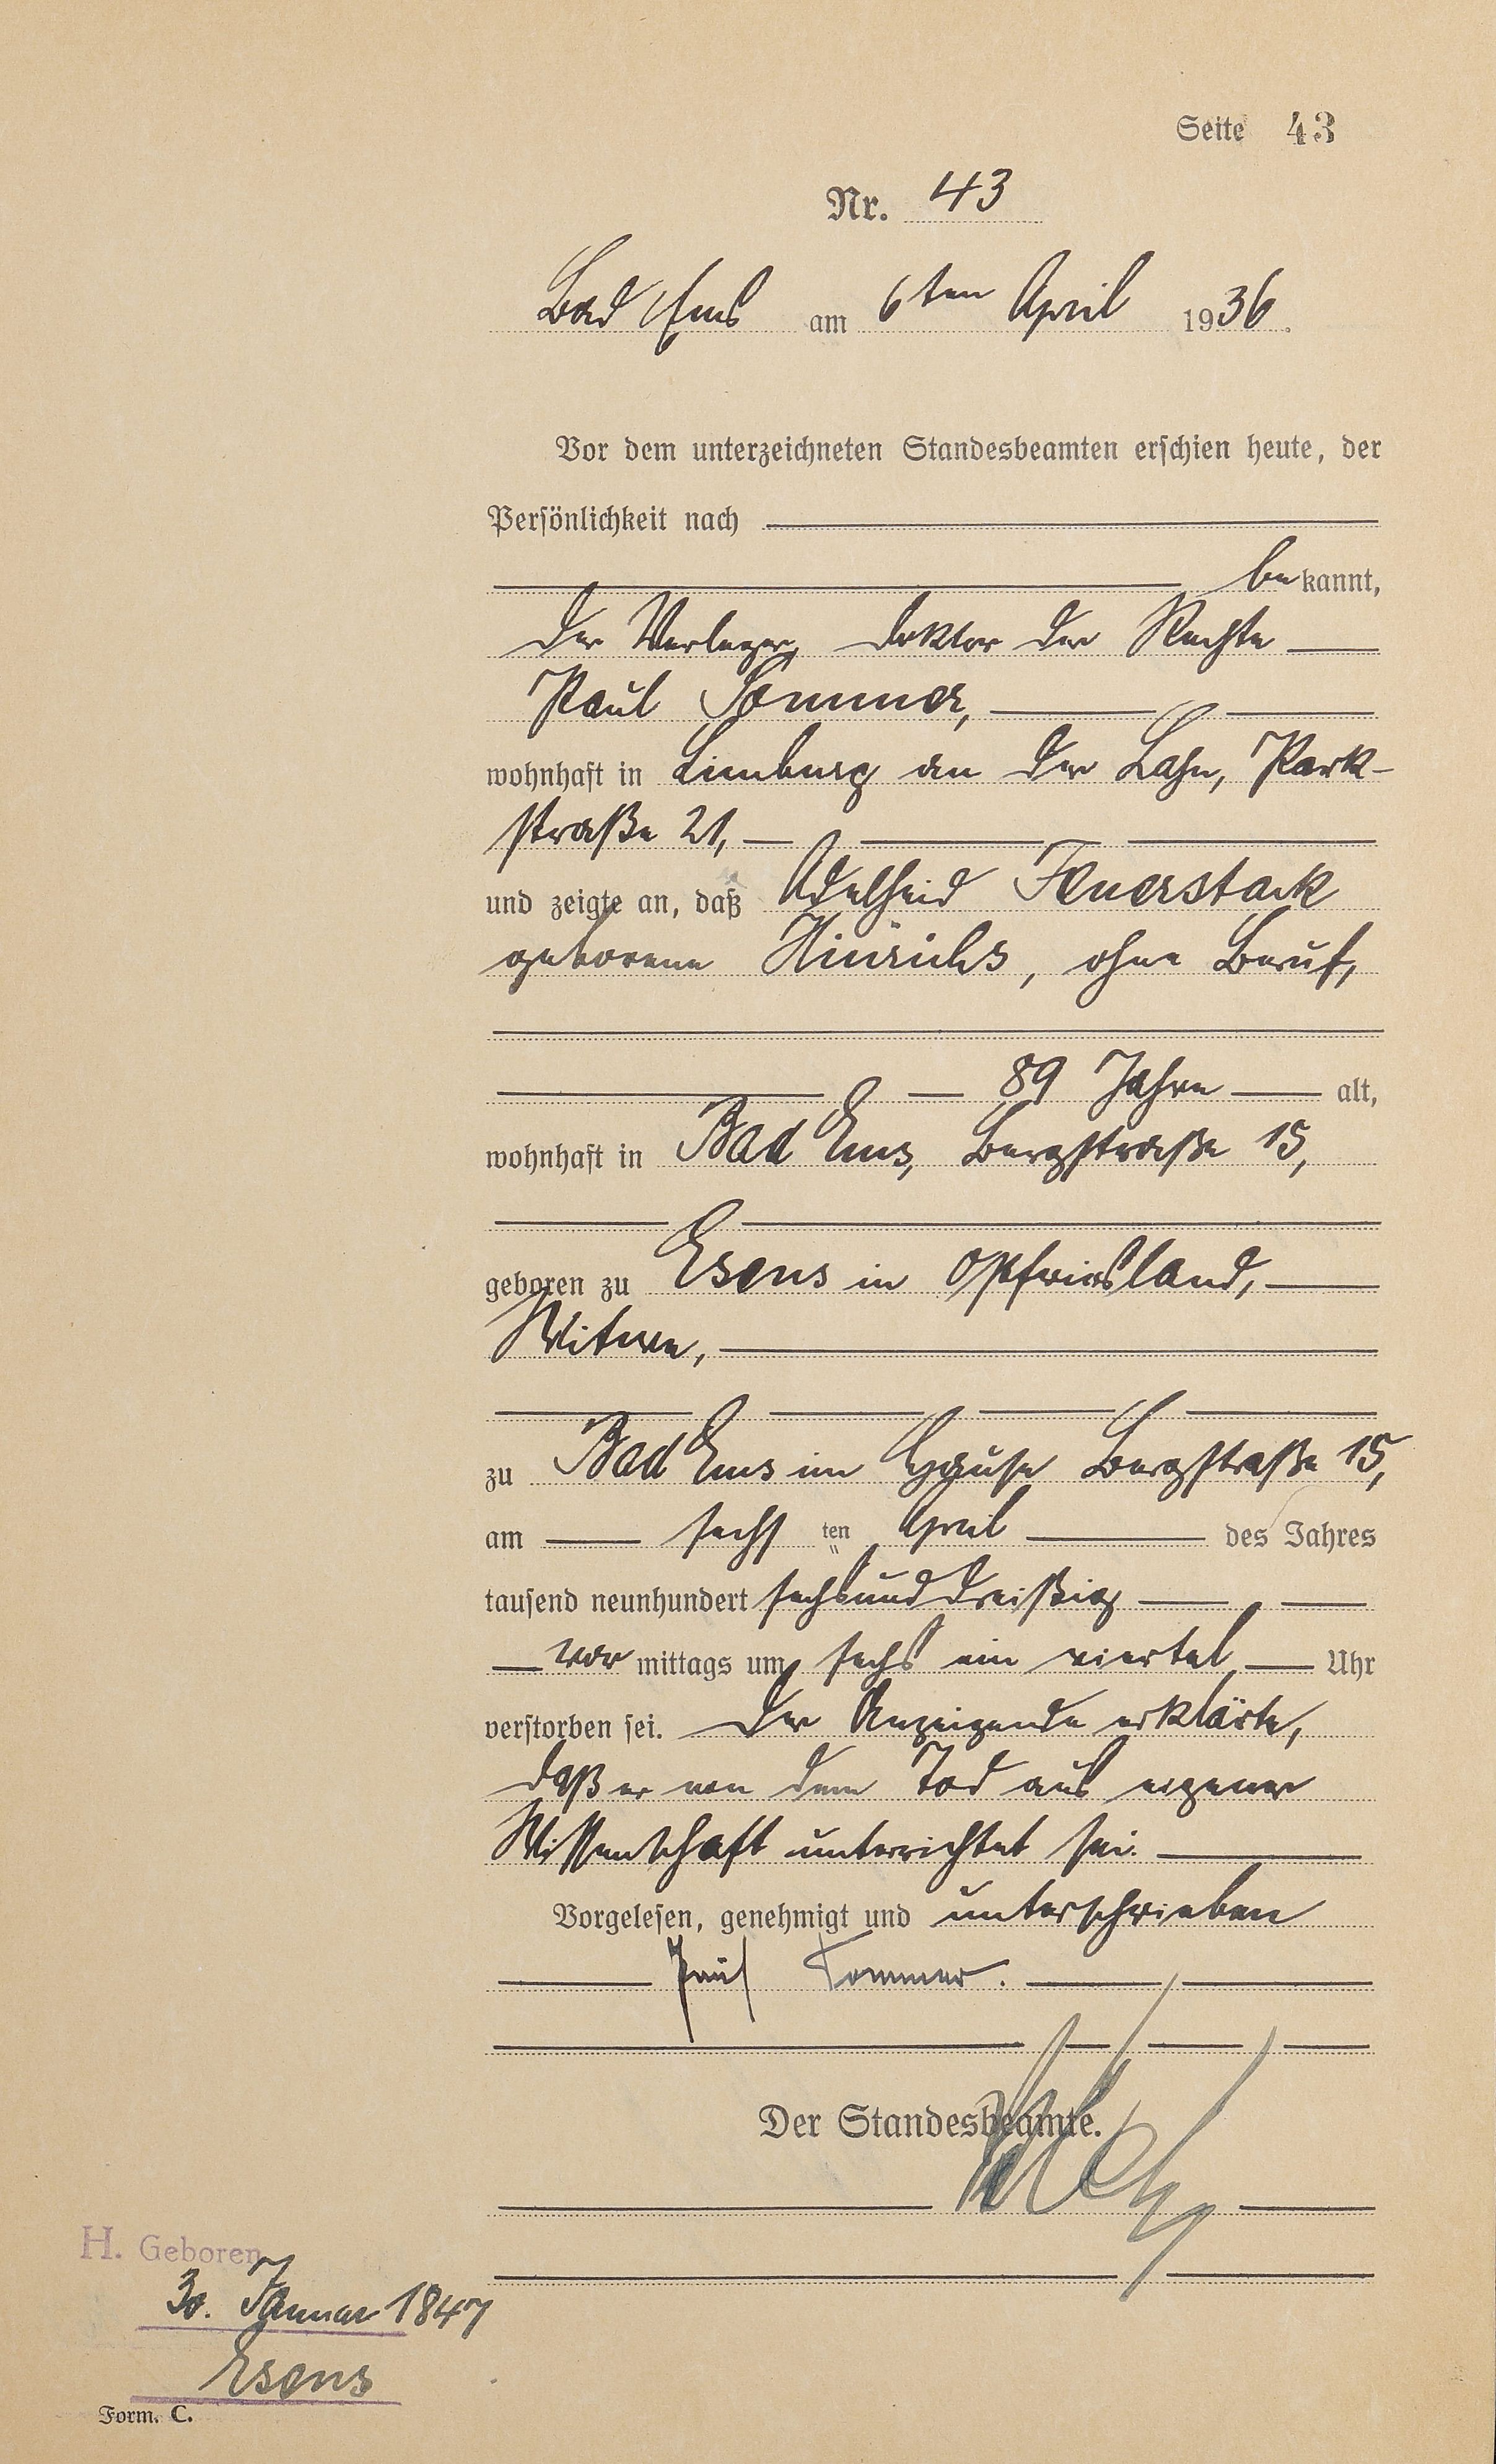 Seite 43
Nr. 43
Bad Ems am 6ten April 1936.
Vor dem unterzeichneten Standesbeamten erschien heute, der
Persönlichkeit nach
bekannt,
der Verleger, Doktor der Rechte
Paul Sommer,
wohnhaft in Limburg an der Lahn, Park-
straße 21,
und zeigte an, daß Adelheid Feuerstack
geborene Hinrichs, ohne Beruf,
89 Jahre alt,
wohnhaft in Bad Ems, Bergstraße 15,
geboren zu Esens in Ostfriesland,
Witwe,
zu Bad Ems im Hause Bergstraße 15,
am sechsten April des Jahres
tausend neunhundert sechsunddreißig
vormittags um sechs ein viertel Uhr
verstorben sei. Der Anzeigende erklärte,
daß er von dem Tod aus eigener
Wissenschaft unterrichtet sei.
Vorgelesen, genehmigt und unterschrieben
Paul Sommer.
Der Standesbeamte.
H. Geboren
30. Januar 1847
Esens
Form. C.